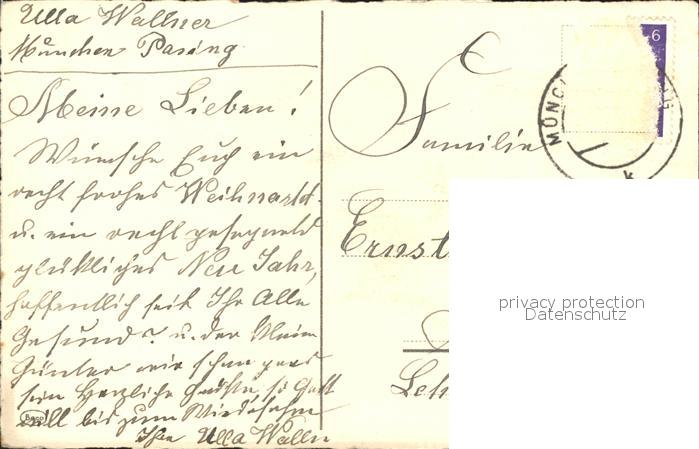 Ulla Wallner
München Pasing
Meine Lieben!
Wünsche Euch ein
recht frohes Weihnacht.
u. ein recht gesegnetes
glükliches Neu Jahr,
hoffentlich seit Ihr Alle
Gesund? u. der kleine
Günter wie schon ganz
sein Herzliche Grüße so Gott
will bis zum Wiedersehn
Ihre Ulla Wallner
Familie
Ernst
Leh
MÜNC
6
k
Beco
privacy protection
Datenschutz